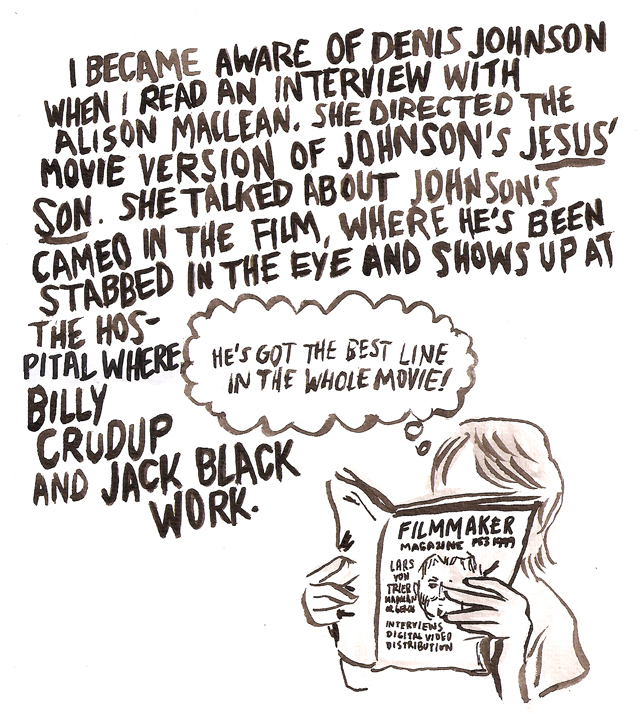 I BECAME AWARE OF DENIS JOHNSON
WHEN I READ AN INTERVIEW WITH
ALISON MACLEAN. SHE DIRECTED THE
MOVIE VERSION OF JOHNSON'S JESUS'
SON. SHE TALKED ABOUT JOHNSON'S
CAMEO IN THE FILM, WHERE HE'S BEEN
STABBED IN THE EYE AND SHOWS UP AT
THE HOS-
PITAL WHERE
BILLY
CRUDUP
AND JACK BLACK
WORK.
HE'S GOT THE BEST LINE
IN THE WHOLE MOVIE!
FILMMAKER
MAGAZINE FEB 1999
LARS
VON
TRIER
INTERVIEWS
DIGITAL VIDEO
DISTRIBUTION